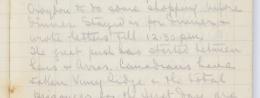 Croydon to do some shopping before
dinner. Stayed in for dinner &
wrote letters till 12.30 am.
The great push has started between
Lens & Arras. Canadians have
taken Vimy Ridge & the total
prisoners for the first day are